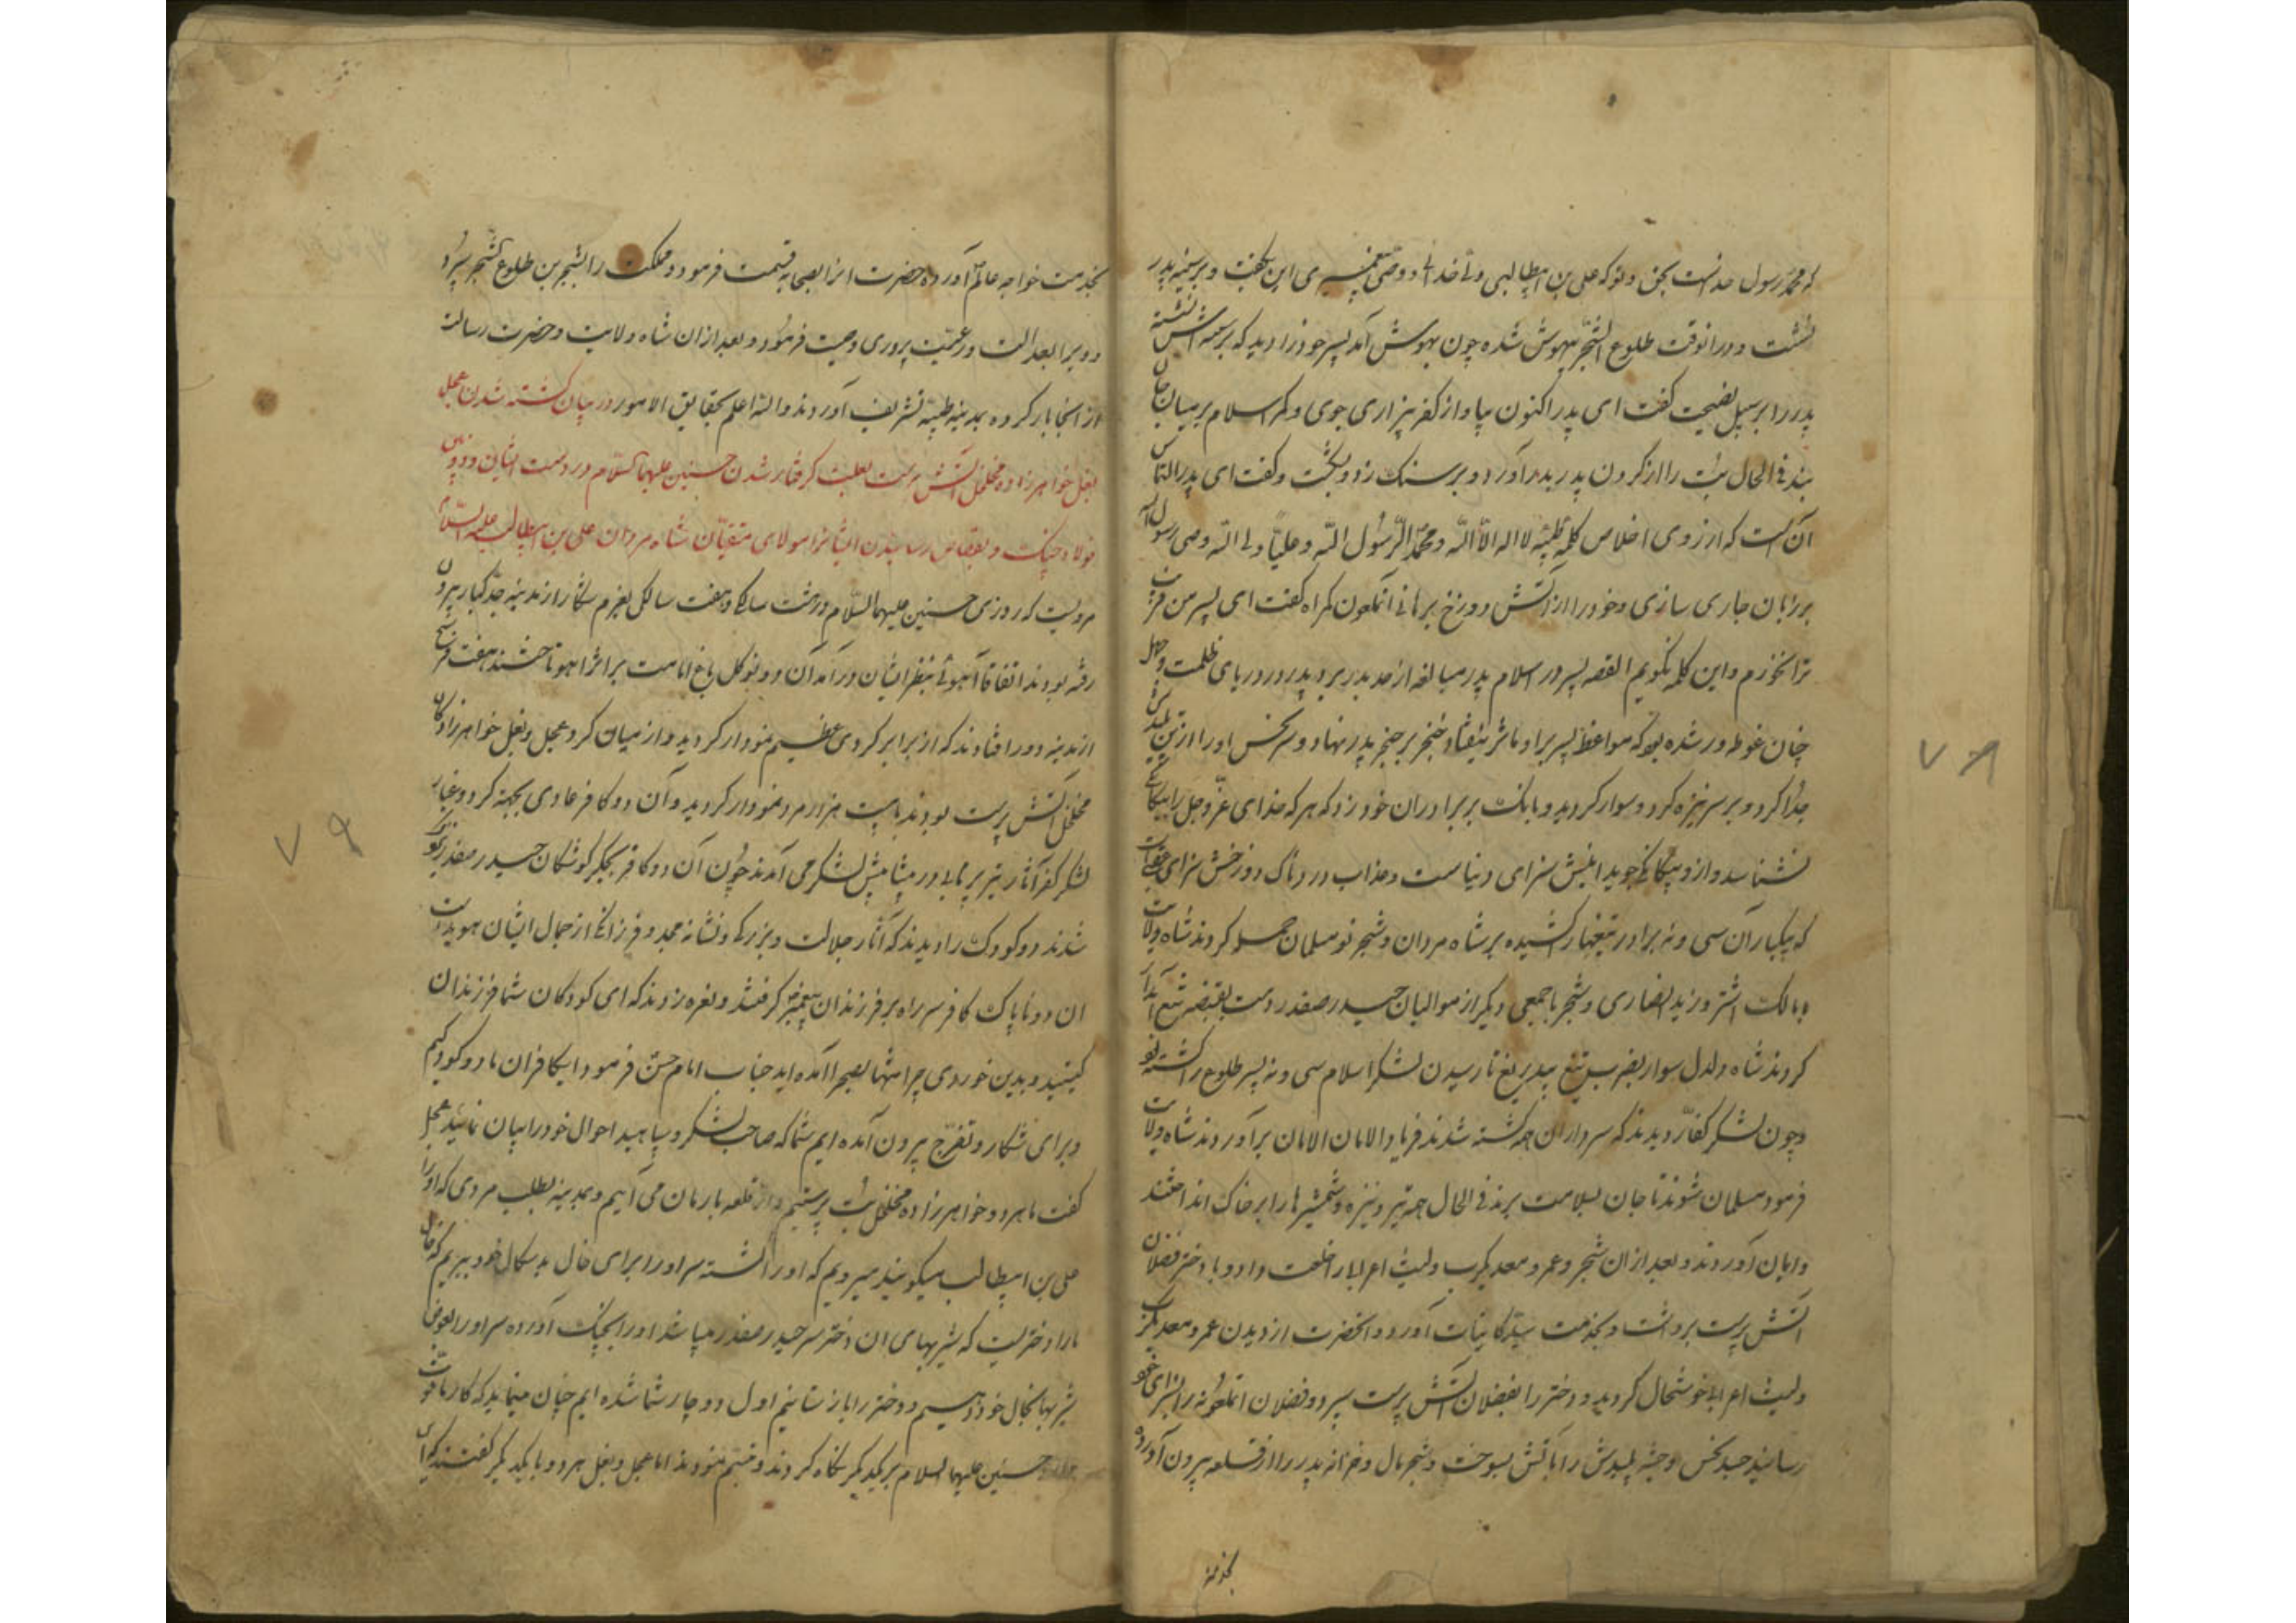 که محمد رسول خداست بحق و توکه علی بن ابیطالبی ولی خدائی و وصی پیغمبری این بگفت و بر سینه پدر
نشست و در آنوقت طلوع الشجر بیهوش شده چون بهوش آمد پسر خود را دید که بر سینه اش نشسته
پدر را بر سبیل نصیحت گفت ای پدر اکنون بیا و از کفر بیزاری جوی و کمر اسلام بر میان جان
بند فی الحال بت را از گردن پدر بدر آورد و بر سنک زد و بشکست و گفت ای پدر التماس
آن است که از روی اخلاص کلمه طیبه لا اله الا الله و محمد الرسول الله و علیا ولی الله وصی رسول الله
بر زبان جاری سازی و خود را از آتش دوزخ برهانی آنملعون گمراه گفت ای پسر من فریب
ترا نخورم و این کلمه نگویم القصه پسر در اسلام پدر مبالغه از حد بدر برد پدر در دریای ظلمت و جهل
چنان غوطه ور شده بود که مواعظ پسر بر او تاثر نیفتاد خنجر بر حنجر پدر نهاد و سر نحس او را از تن پلیدش
جدا کرد و بر سر نیزه کرد و سوار کردید و بانک بر برادران خود زد که هر که خدای عز و جل را بیکانکی
نشناسد و از و بیکانکی جوید اینش سزای دنیاست و عذاب دردناک دوزخش سزای عقبی
که بیکبار آن سی و نه برادر تیغها کشیده بر شاه مردان و شجر نو مسلمان حمله کردند شاه ولایت
و مالک اشتر و زید انصاری و شجر با جمعی دیگر از موالیان حیدر صفدر دست بقبضه تیغ آبدار
کردند شاه دلدل سوار بضرب تیغ بیدریغ تا رسیدن لشکر اسلام سی و نه پسر طلوع را کشته بود
و چون لشکر کفار دیدند که سرداران همه کشته شدند فریاد الامان الامان بر آوردند شاه ولایت
فرمود مسلمان شوند تا جان بسلامت برند فی الحال همه تیر و نیزه و شمشیرها را بر خاک انداختند
و ایمان آوردند و بعد از آن شجر و عمر و معدیکرب و لیث اعرابی را خلعت داد و با دختر فضلان
آتش پرست برداشت و بخدمت سید کاینات آورد و آنحضرت از دیدن عمر و معدیکرب
و لیث اعرابی خوشحال کردید و دختر را بفضلان آتش پرست سپرد و فضلان آنملعونه را بسزای خود
رسانید جسد نحس و جثه پلیدش را بآتش بسوخت و شجر مال و خزانه پدر را از قلعه بیرون آورده
بخدمت
بخدمت خواجه عالم آورده حضرت انرا بصحابه قسمت فرمود و مملکت را بشجر بن طلوع الشجر سپرد
و ویرا بعدالت و رعیت پروری وصیت فرمود و بعد از ان شاه ولایت و حضرت رسالت
از آنجا بار کرده بمدینه طیبه تشریف آوردند والله اعلم بحقایق الامور در بیان کشته شدن عجل
بغل خواهرزاده مخلخل آتش پرست بعلت کرفتار شدن حسنین علیهما السلام در دست ایشان و دویدن
فولاد چنک و بقصاص رسانیدن ایشانرا مولای متقیان شاه مردان علی بن ابیطالب علیه السلام
مرویست که روزی حسنین علیهما السلام در هشت سالکی و هفت سالکی بعزم شکار از مدینه جد کبار بیرون
رفته بودند اتفاقا آهوئی بنظر ایشان در آمد آن دو نو کل باغ امامت بر اثر اهو تاختند هفت فرسخ
از مدینه دور افتادند که از برابر کردی عظیم نمودار کردید و از میان کرد عجل و بغل خواهرزادکان
مخلخل آتش پرست بودند با بیست هزار مرد نمودار کردید و آن دو کافر عادی بجهته کرد و غبار
لشکر کفر آثار تیر پرتابی در پیشاپیش لشکر می آمدند چون آن دو کافر بجکر کوشکان حیدر صفدر نزدیک
شدند دو کودک را دیدند که آثار جلالت و بزرکی و نشانه مجد و فرزانکی از جمال ایشان هویداست
ان دو ناپاک کافر سر راه بر فرزندان پیغمبر کرفتند و نعره زدند که ای کودکان شما فرزندان
کیستید و بدین خوردی چرا تنها بصحرا آمده اید جناب امام حسن فرمود ایکافران ما دو کودکیم
و برای شکار و تفرج بیرون آمده ایم شما که صاحب لشکر و سپاهید احوال خود را بیان نمائید عجل
گفت ما هر دو خواهرزاده مخلخل بت پرستیم و از قلعه بار مان می آییم و بمدینه بطلب مردی که او را
علی بن ابیطالب میکویند میرویم که او را کشته سر او را برای خال بد سکال خود ببریم که خال
ما را دختریست که شیربهای ان دختر سر حیدر صفدر میباشد او را بچنک آورده سر او را بعوض
شیربها بخال خود دهیم و دختر را باز ستانیم اول دوچار شما شده ایم چنان مینماید که کار ما فوت
حسنین علیهما السلام بر یکدیکر نکاه کردند و تبسم نمودند اما عجل و بغل هر دو با یکدیکر گفتند که ای
۷۸
۷۹